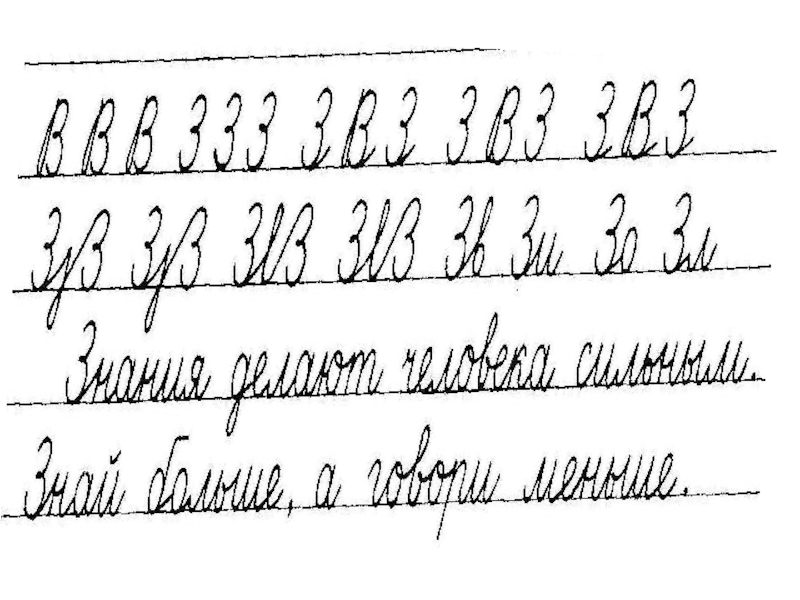 В В В З З З З В З З В З З В З
ЗуВ ЗуВ ЗlВ ЗlВ Зв Зи Зо Зл
Знания делают человека сильным.
Знай больше, а говори меньше.